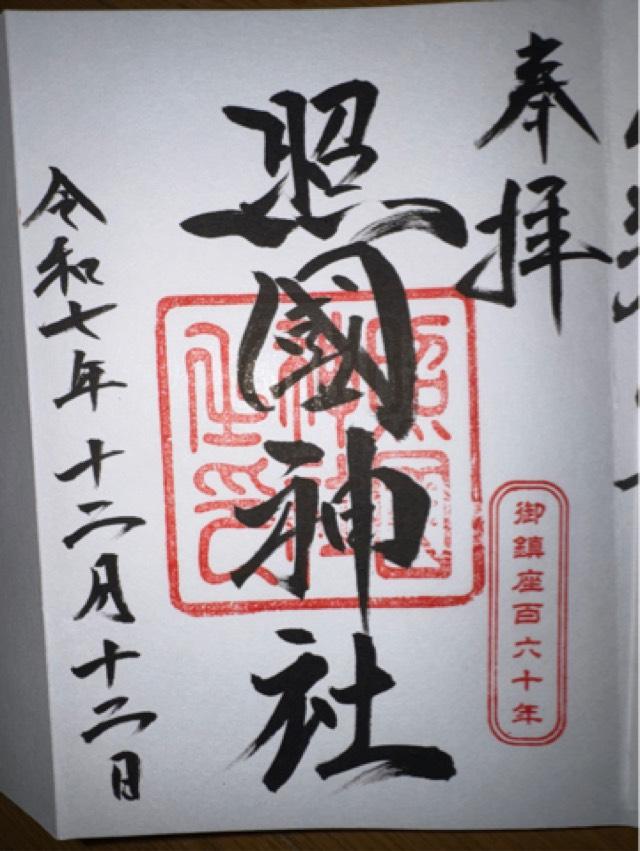 奉拝
照國神社
御鎮座百六十年
令和七年十二月十二日